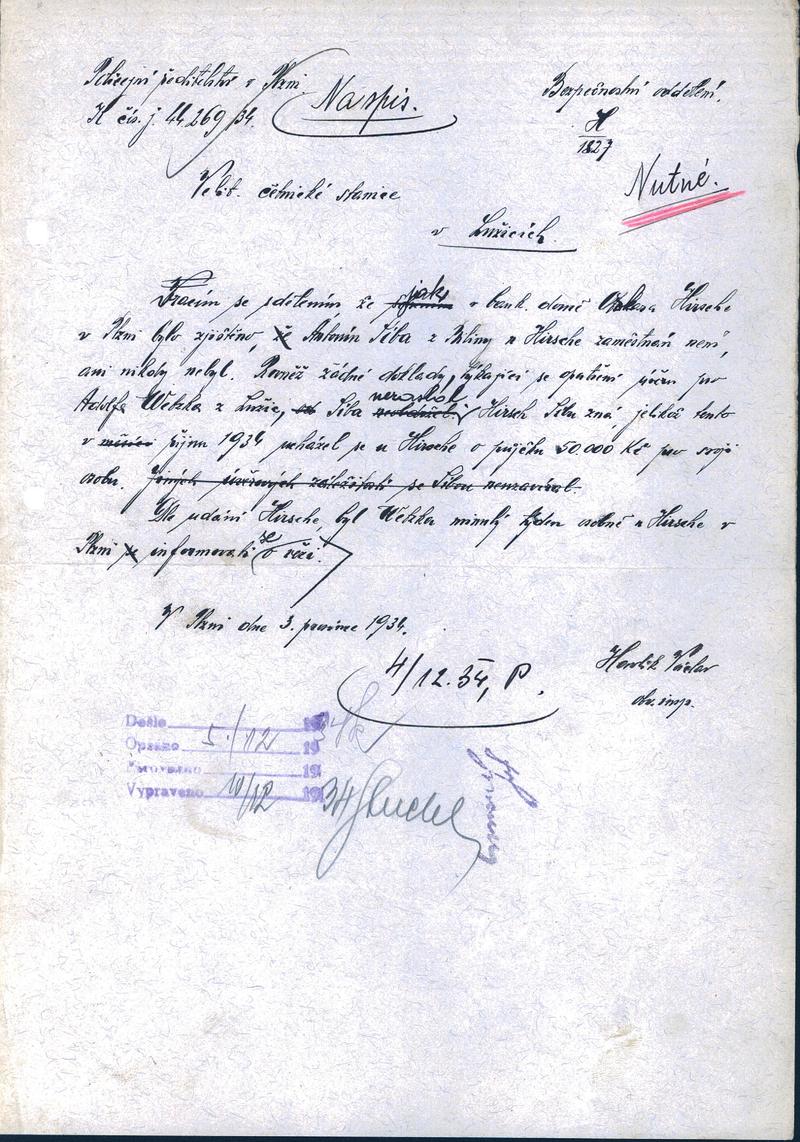 Policejní ředitelství v Plzni
K čís. j. 44.269/34.
Na spis.
Bezpečnostní oddělení.
H
1827
Nutné.
Velit. četnické stanice
v Lužicích.
Vracím se sdělením, že jak v bank. domě Oskara Hirsche
v Plzni bylo zjištěno, že Antonín Síba z Bíliny u Hirsche zaměstnán není,
ani nikdy nebyl. Rovněž žádné doklady, týkající se opatření úvěru pro
Adolfa Wetzka z Lužic, od Síba nedodržel. Hirsch Síbu zná, jelikož tento
v měsíci říjnu 1934 ucházel se u Hirsche o půjčku 50.000 Kč pro svoji
osobu. Jiných úvěrových záležitostí se Síbou neuzavíral.
Dle udání Hirsche, byl Wetzka minulý týden osobně u Hirsche v
Plzni se informovati o věci.
V Plzni dne 3. prosince 1934.
4/12.34, P.
Havlík Václav
obv. insp.
Došlo 19
Opsáno 5./12 1934
19
Vypraveno 10/12 1934